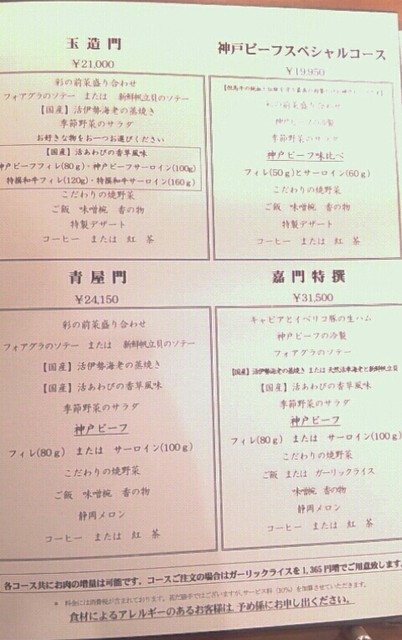 玉造門
¥21,000
彩の前菜盛り合わせ
フォアグラのソテー または 新鮮帆立貝のソテー
【国産】活伊勢海老の蒸焼き
季節野菜のサラダ
お好きな物をお一つお選びください
【国産】活あわびの香草風味
神戸ビーフフィレ(80g)・神戸ビーフサーロイン(100g)
特撰和牛フィレ(120g)・特撰和牛サーロイン(160g)
こだわりの焼野菜
ご飯 味噌椀 香の物
特製デザート
コーヒー または 紅 茶
神戸ビーフスペシャルコース
¥19,950
前菜盛り合わせ
季節野菜のサラダ
神戸ビーフ味比べ
フィレ(50g)とサーロイン(60g)
こだわりの焼野菜
ご飯 味噌椀 香の物
特製デザート
コーヒー または 紅 茶
青屋門
¥24,150
彩の前菜盛り合わせ
フォアグラのソテー または 新鮮帆立貝のソテー
【国産】活伊勢海老の蒸焼き
【国産】活あわびの香草風味
季節野菜のサラダ
神戸ビーフ
フィレ(80g) または サーロイン(100g)
こだわりの焼野菜
ご飯 味噌椀 香の物
静岡メロン
コーヒー または 紅 茶
嘉門特撰
¥31,500
キャビアとイベリコ豚の生ハム
神戸ビーフの冷製
フォアグラのソテー
【国産】活伊勢海老の蒸焼き または 天然活車海老と新鮮帆立貝
【国産】活あわびの香草風味
季節野菜のサラダ
神戸ビーフ
フィレ(80g) または サーロイン(100g)
こだわりの焼野菜
ご飯 または ガーリックライス
味噌椀 香の物
静岡メロン
コーヒー または 紅 茶
各コース共にお肉の増量は可能です。コースご注文の場合はガーリックライスを1,365円増でご用意致します。
* 料金には消費税が含まれております。誠に勝手ではございますが、サービス料(10%)を加算させていただきます。
食材によるアレルギーのあるお客様は 予め係にお申し出ください。